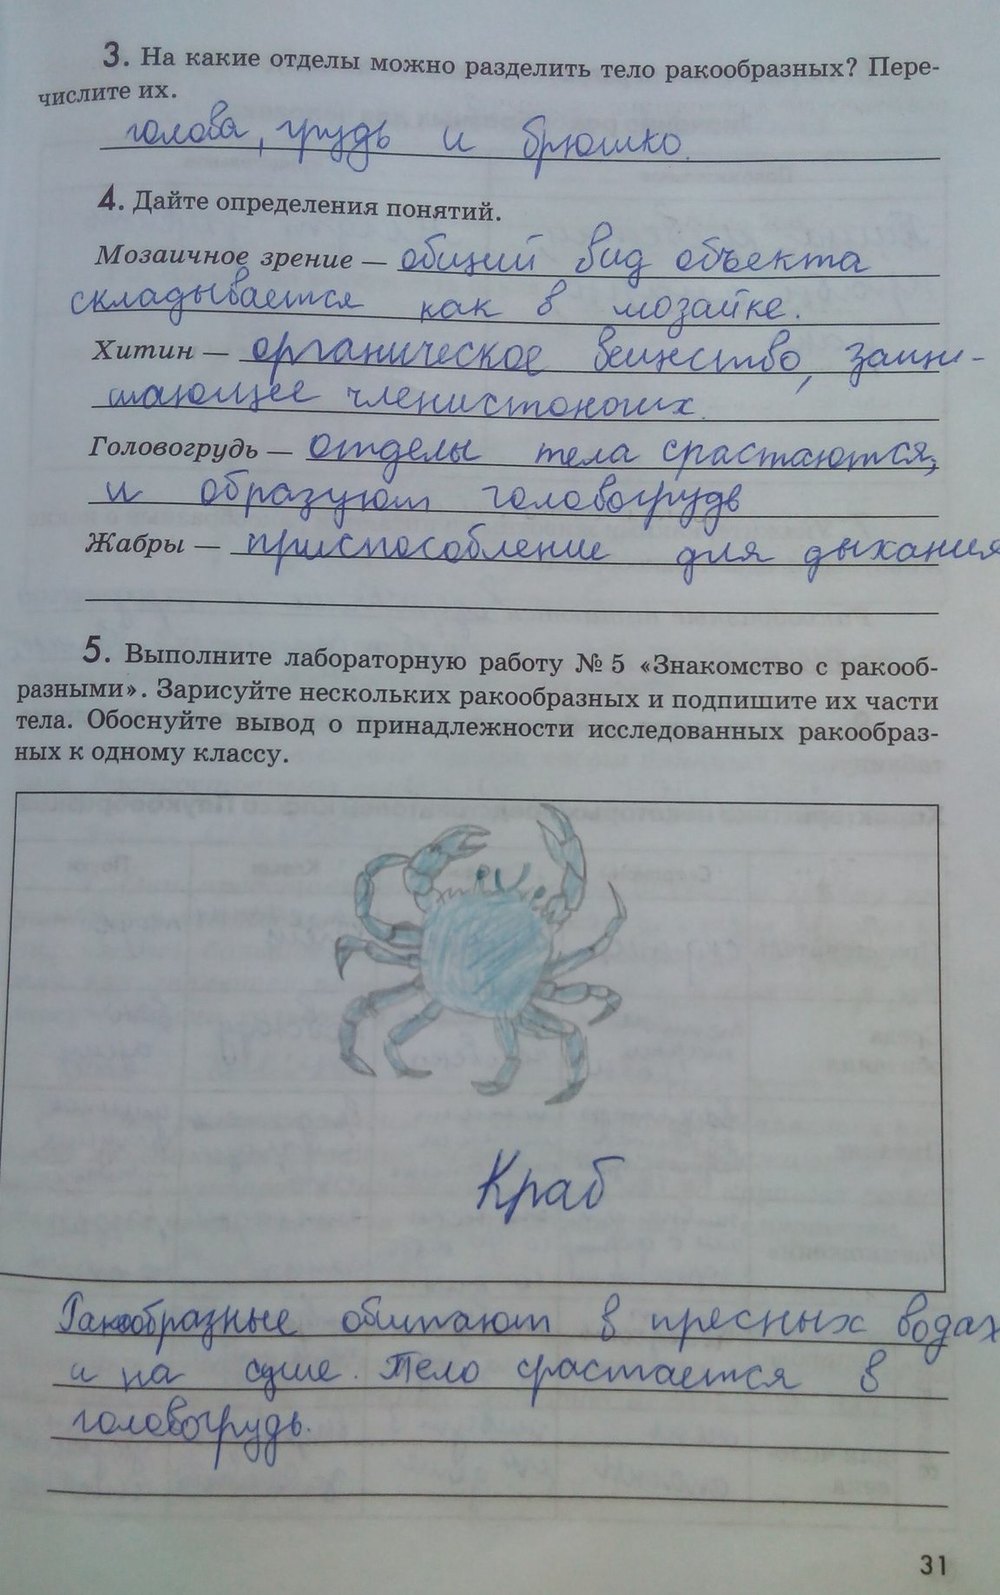 3. На какие отделы можно разделить тело ракообразных? Пере-
числите их.
голова, грудь и брюшко.
4. Дайте определения понятий.
Мозаичное зрение — общий вид объекта
складывается как в мозайке.
Хитин — органическое вещество, защи-
щающее членистоногих.
Головогрудь — отделы тела срастаются,
и образуют головогрудь
Жабры — приспособление для дыхания
5. Выполните лабораторную работу № 5 «Знакомство с ракооб-
разными». Зарисуйте нескольких ракообразных и подпишите их части
тела. Обоснуйте вывод о принадлежности исследованных ракообраз-
ных к одному классу.
Краб
Ракообразные обитают в пресных водах
и на суше. Тело срастается в
головогрудь.
31